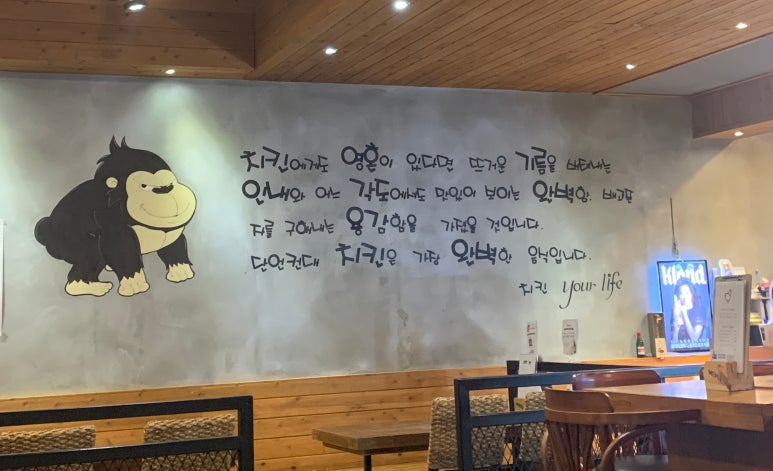 치킨에게도 영혼이 있다면 뜨거운 기름을 버텨내는
인내와 어느 각도에서도 맛있어 보이는 완벽함, 배고픈
자를 구해내는 용감함을 가졌을 것입니다.
단언컨대 치킨은 가장 완벽한 음식입니다.
치킨 your life
Kloud